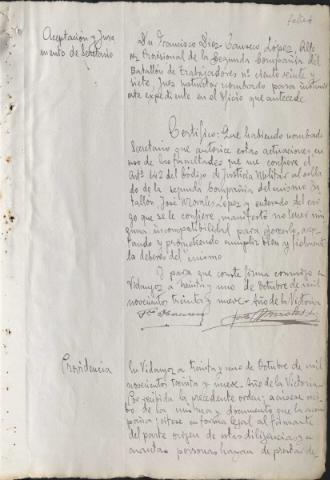 folio 6
Aceptación y Jura
mento de Secretario
Don Francisco Diez López, Alfe
rez Provisional de la Segunda Compañia del
Batallón de Trabajadores nº ciento veinte y
siete, Juez instructor nombrado para instruir
este expediente en el oficio que antecede.
Certifico: Que habiendo nombrado
Secretario que autorice estas actuaciones en
uso de las facultades que me confiere el
Artº 142 del Código de Justicia Militar al solda
do de la segunda Compañia del mismo Ba
tallón, José Morales López y enterado del car
go que se le confiere, manifestó no tener nin
guna incompatibilidad para ejercerlo, acep
tando y prometiendo cumplir bien y fielmente
los deberes del mismo
Y para que conste firma conmigo en
Vidangoz a treinta y uno de Octubre de mil
novecientos treinta y nueve. Año de la Victoria
José Morales
Providencia
En Vidangoz a treinta y uno de Octubre de mil
novecientos treinta y nueve. Año de la Victoria.
Por recibida la precedente orden; acúsese reci
bo de la misma y documento que la acom
paña; cítese en forma legal al firmante
del parte origen de estas diligencias y
cuantas personas hayan de prestar de